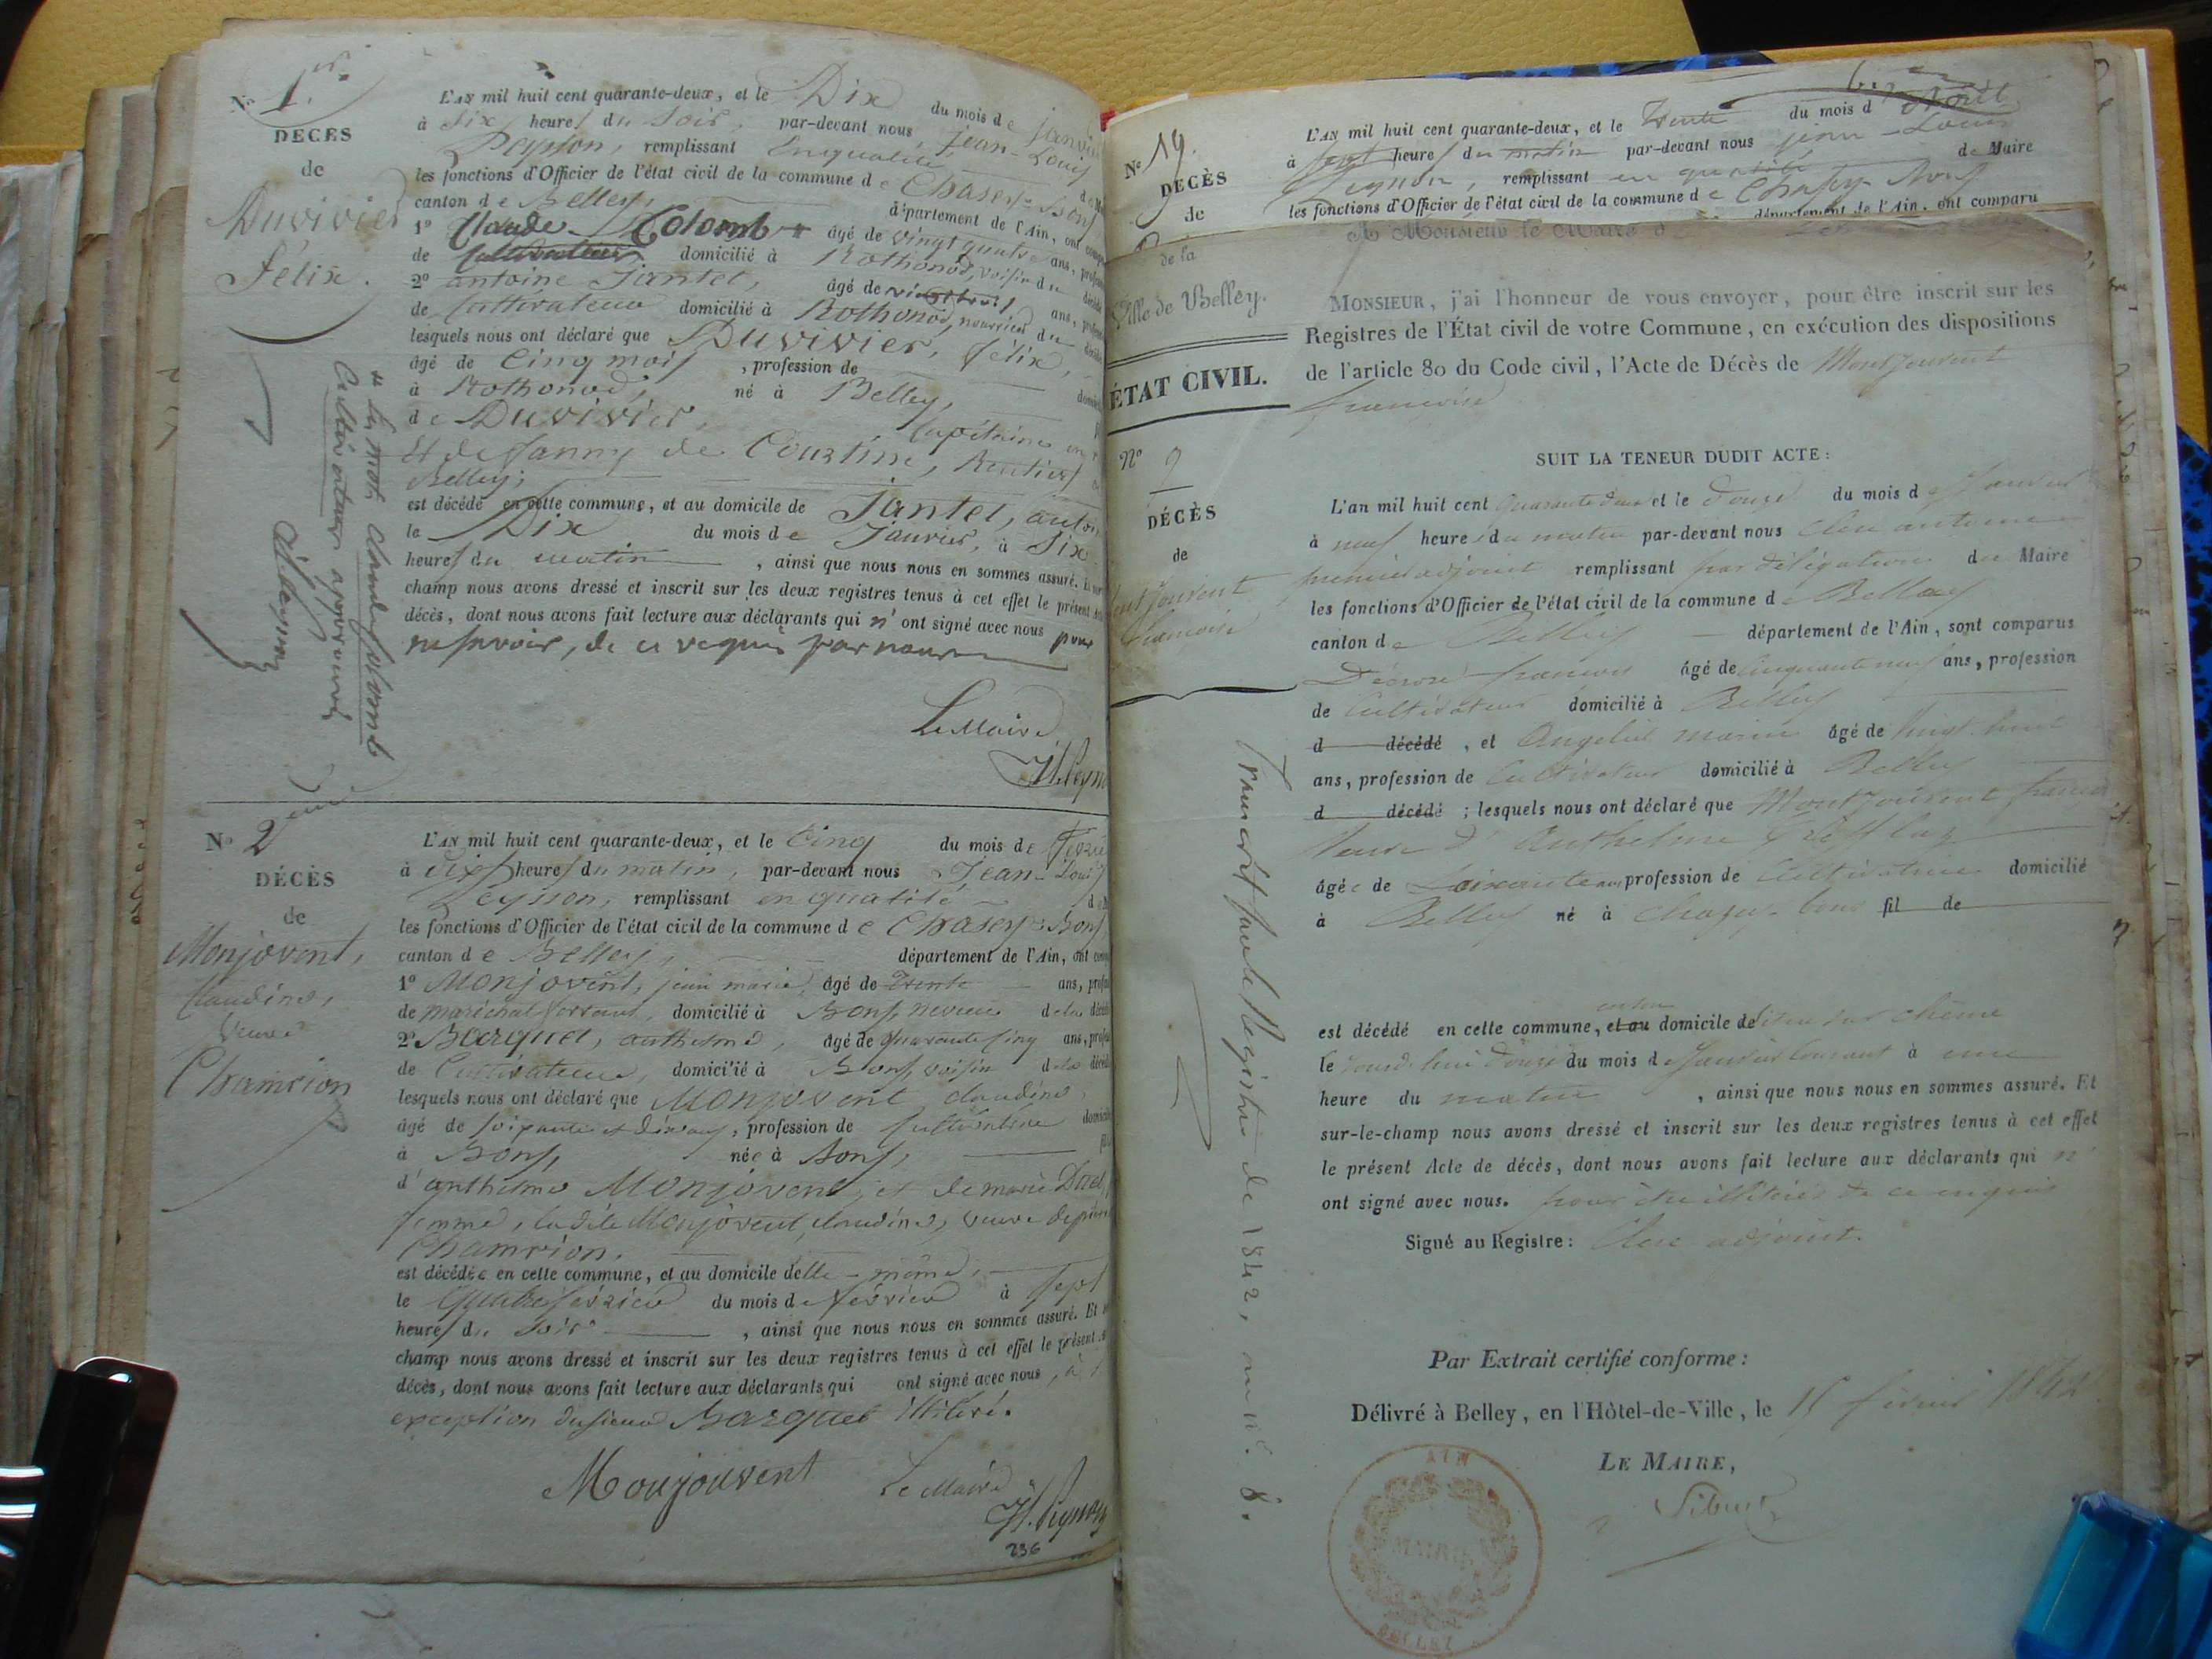 No 1er.
DÉCÈS
de
Duvivier
Félix.
L'AN mil huit cent quarante-deux, et le Dix du mois de Janvier
à Six heures du Soir, par-devant nous Jean-Louis
Peysson, remplissant en qualité
les fonctions d'Officier de l'état civil de la commune de Chasey-Bons
canton de Belley, département de l'Ain, ont
1o Claude Colomb + âgé de vingt quatre ans,
de cultivateur domicilié à Rothonod, voisin du
2o antoine Jantet, âgé de ans,
de Cultivateur domicilié à Rothonod, nourricier du
lesquels nous ont déclaré que Duvivier, félix,
âgé de Cinq mois, profession de
à Rothonod, né à Belley,
de Duvivier, Capitaine en
Et de fanny de Courtine, Rentiers
Belley;
est décédé en cette commune, et au domicile de Jantet, antoine
le Dix du mois de Janvier, à Six
heures du matin, ainsi que nous nous en sommes assuré.
champ nous avons dressé et inscrit sur les deux registres tenus à cet effet le présent
décès, dont nous avons fait lecture aux déclarants qui n'ont signé avec nous pour
ne savoir, de ce requis par nous
Le Maire
+ Les mots Claude Colomb
Cultivateur approuvés
No 2eme
DÉCÈS
de
Monjovent,
Claudine,
veuve
Chamrion
L'AN mil huit cent quarante-deux, et le Cinq du mois de
à dix heures du matin, par-devant nous Jean-Louis
Peysson, remplissant en qualité
les fonctions d'Officier de l'état civil de la commune de Chasey-Bons
canton de Belley, département de l'Ain, ont
1o Monjovent, jean marie, âgé de Trente ans,
de maréchal ferrant, domicilié à Bons, neveu de la
2o Barquet, anthelme, âgé de quarante cinq ans,
de Cultivateur, domicilié à Bons, voisin de la
lesquels nous ont déclaré que Monjovent claudine,
âgé de soixante et dix neuf, profession de Cultivatrice
à Bons, née à Bons,
d'anthelme Monjovent, et de marie
femme, ladite Monjovent, claudine, veuve de
Chamrion.
est décédée en cette commune, et au domicile d'elle-même,
le quatre février du mois de février à sept
heures du soir, ainsi que nous nous en sommes assuré. Et
champ nous avons dressé et inscrit sur les deux registres tenus à cet effet le présent
décès, dont nous avons fait lecture aux déclarants qui ont signé avec nous, à l'
exception du sieur Barquet illitéré.
Monjouvent
Le Maire
236
No 19.
DÉCÈS
de
L'AN mil huit cent quarante-deux, et le trente du mois d
à sept heures du matin par-devant nous jean-Louis
Peysson, remplissant en qualité de Maire
les fonctions d'Officier de l'état civil de la commune de Chasey-Bons
département de l'Ain, ont comparu
A Monsieur le Maire d
de la
Ville de Belley.
ÉTAT CIVIL.
MONSIEUR, j'ai l'honneur de vous envoyer, pour être inscrit sur les
Registres de l'État civil de votre Commune, en exécution des dispositions
de l'article 80 du Code civil, l'Acte de Décès de Montjouvent
françoise
No 9
DÉCÈS
de
Montjouvent
françoise
SUIT LA TENEUR DUDIT ACTE:
L'an mil huit cent quarante deux et le Douze du mois de Janvier
à neuf heures du matin par-devant nous antoine
premier adjoint remplissant par délégation du Maire
les fonctions d'Officier de l'état civil de la commune de Belley
canton de Belley département de l'Ain, sont comparus
françois âgé de cinquante neuf ans, profession
de Cultivateur domicilié à Belley
d décédé, et marin âgé de vingt huit
ans, profession de Cultivateur domicilié à Belley
d décédé; lesquels nous ont déclaré que Montjouvent
Veuve d'Anthelme
âgée de soixante ans profession de Cultivatrice domicilié
à Belley né à Chazey bons fil de
est décédé en cette commune, et au domicile de
le jourd'hui Douze du mois de Janvier courant à une
heure du matin, ainsi que nous nous en sommes assuré. Et
sur-le-champ nous avons dressé et inscrit sur les deux registres tenus à cet effet
le présent Acte de décès, dont nous avons fait lecture aux déclarants qui n'
ont signé avec nous. pour être illitérés de ce enquis
Signé au Registre: adjoint.
Par Extrait certifié conforme:
Délivré à Belley, en l'Hôtel-de-Ville, le 15 février 1842
LE MAIRE,
Sibuet
AIN
MAIRIE
BELLEY
Transcrit sur le Registre de 1842, au no. 8.